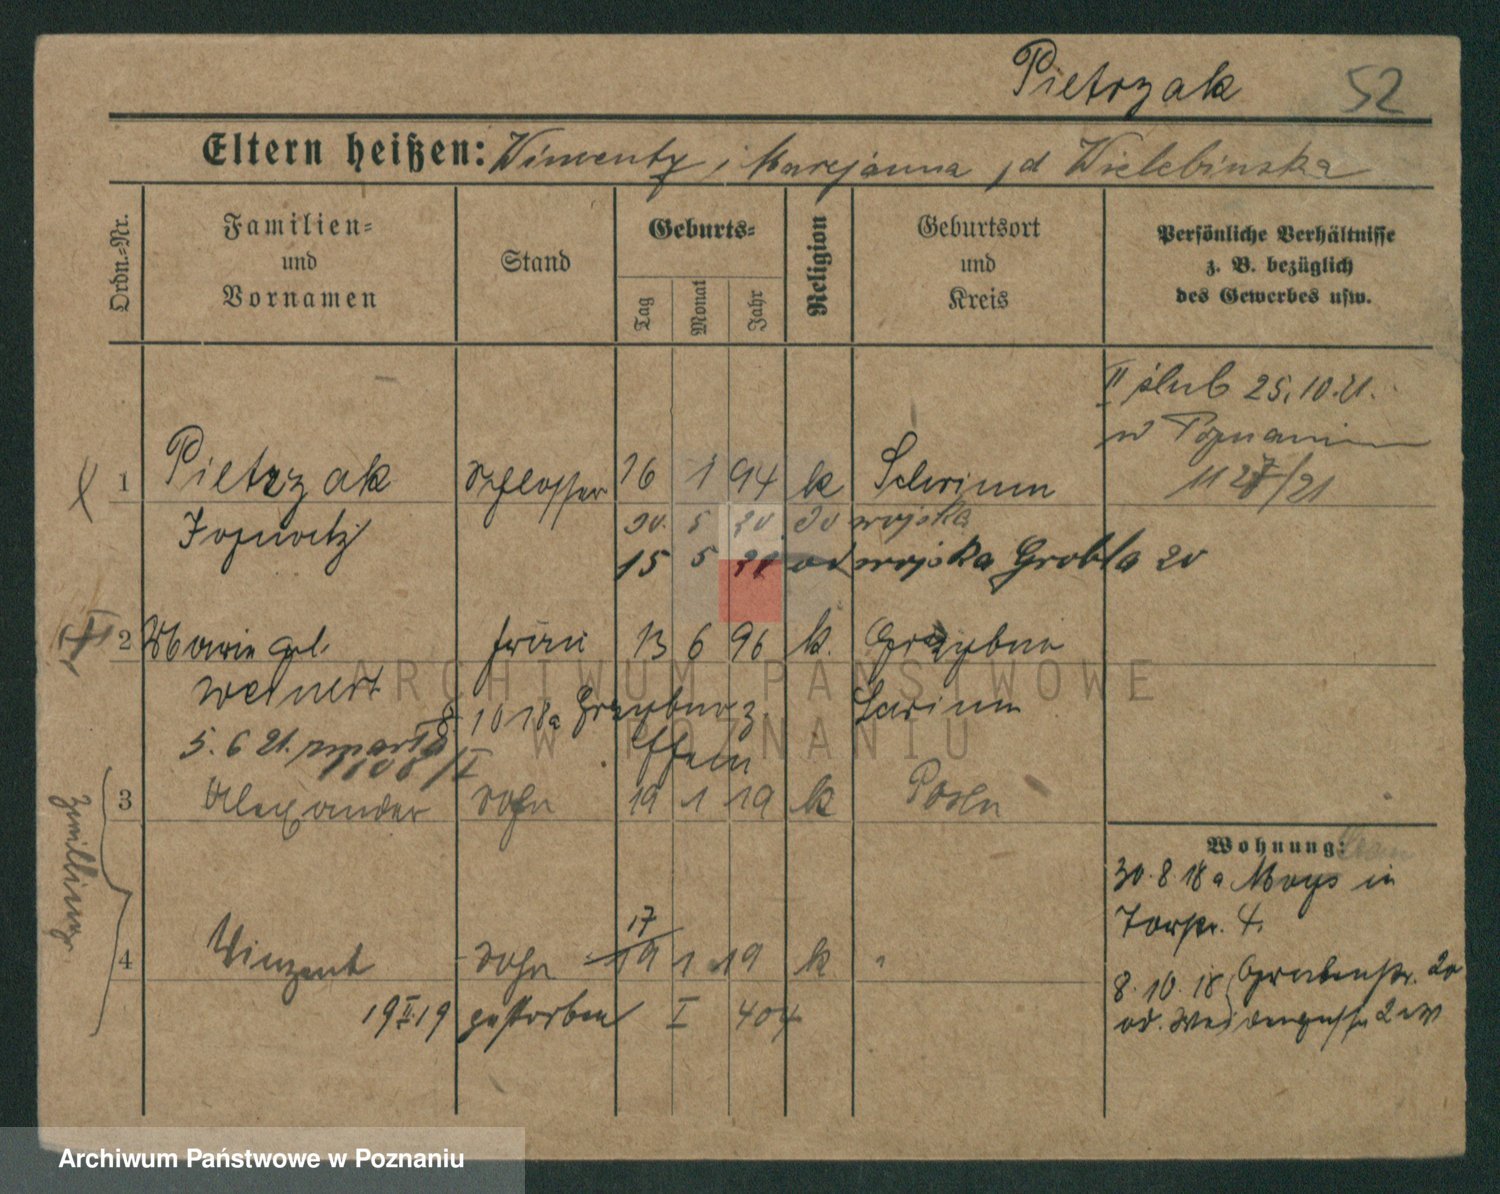 Pietrzak 52
Eltern heißen: Wincenty i Maryanna z d Wielebinska
Ordn.-Nr.
Familien- und Vornamen
Stand
Geburts-
Tag Monat Jahr
Religion
Geburtsort und Kreis
Persönliche Verhältnisse z. B. bezüglich des Gewerbes usw.
II ślub 25.10.21.
w Poznaniu
1127/21
1 Pietrzak Schlosser 16 1 94 k Schrimm
30. 5 20 do wojska
15 5 21 od wojska Grobla 20
2 Marie geb. Frau 13 6 96 k.
Weinert Schrimm
10 18a
5. 6 21. zmarła
3 Alexander Sohn 19 1 19 k Posen
zwillinge
Wohnung:
30. 8 18 a Moys in
17
4 Vinzent Sohn 19 1 19 k "
8. 10. 18 Grabenstr. 20
19 II 19 gestorben I 404
ARCHIWUM PAŃSTWOWE
W POZNANIU
Archiwum Państwowe w Poznaniu